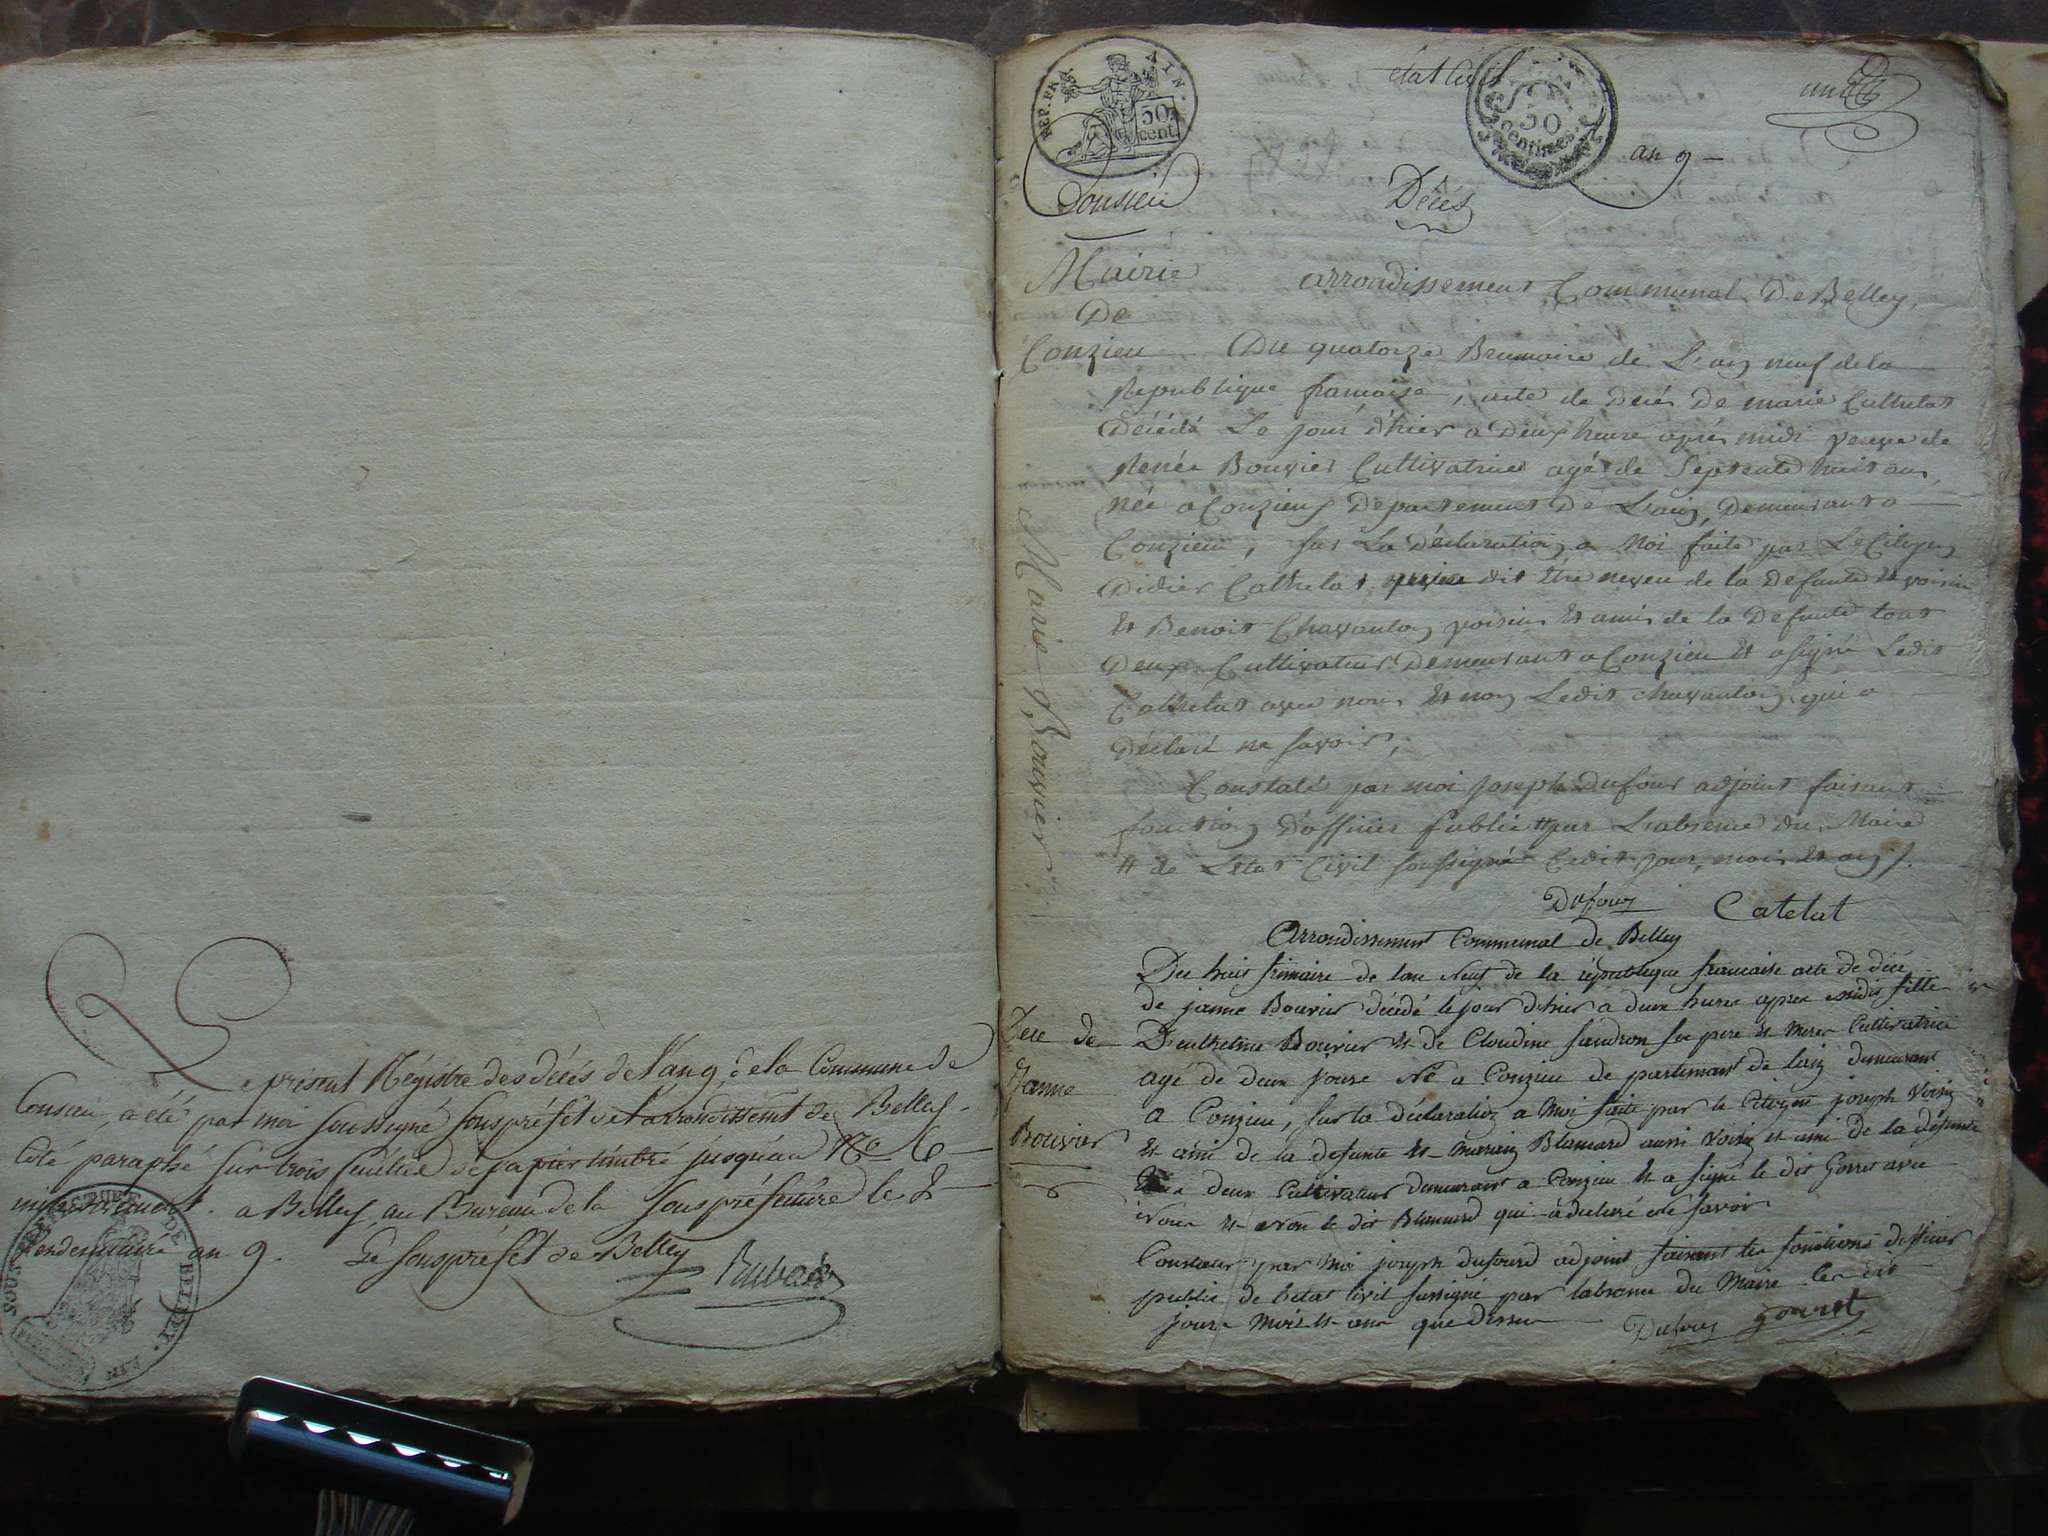 Le présent Régistre des décés de l'an 9, de la Commune de
Consieu, a été par moi soussigné sous préfet de l'arrondissemt de Belley
Coté paraphé sur trois feuilles de papier timbré jusqu'au No 6
inclusivement. a Belley, au Bureau de la sous préfecture le 2
Vendemiaire an 9. Le sous préfet de Belley
SOUS PREFECTURE DE BELLEY. AIN
REP. FRA. AIN.
50 cent.
état Civil
50 centimes
an 9
Consieu
Décés
Mairie
De
Conzieu
arrondissement Communal De Belley,
Du quatorze Brumaire de L'an neuf de la
Republique francaise, acte de Decés De marie Cathelat
Décédé Le jour d'hier a Deux heure aprés midi veuve de
Renée Bouvier Cultivatrice agé de Septente huit ans
née a Conzieu Departement De L'ain, Demeurant a
Conzieu, sur La Déclaration a Moi faite par Le Citoyen
Didier Cathelat dit être neveu de la Defunte et voisin
et Benoit Chavanton voisin et amis de la Defunte tout
Deux Cultivateur Demeurant a Conzieu et a signé Ledit
Cathelat avec nous et non Ledit Chavanton qui a
Déclaré ne savoir,
Constaté par moi joseph Dufour adjoint faisant
fonction d'officier Public # par L'absence du Maire
# de L'état Civil soussigné Ledit jour, mois et an
Dufour Catelat
Marie Bouvier
arrondissement Communal de Belley
Du huit frimaire de lan Neuf de la republique francaise acte de déce
de janne Bouvier décédé le jour d'hier a deux hure apre midis fille
Denthelme Bouvier et de Cloudine sa pere et mere Cultivatrice
agé de deux joure Né a Conzieu de partement de lain demurant
a Conzieu, sur la déclaration a Moi faite par le Citoyen joseph Voisin
et ami de la defunte et Blamard aussi voisin et ami de la défunte
deux Cultivateur demurant a Conzieu et a signé le dit Gorret avec
Nous et Non le dit Blamard qui a declaré ne savoir
Constaté par Moi joseph dufourd adjoint faisant les fonctions dofficier
public de letat Civil sousigné par labsence du Maire les dit
joure Mois et ane que dessu
Dufour gorret
Dece de
Janne
Bouvier